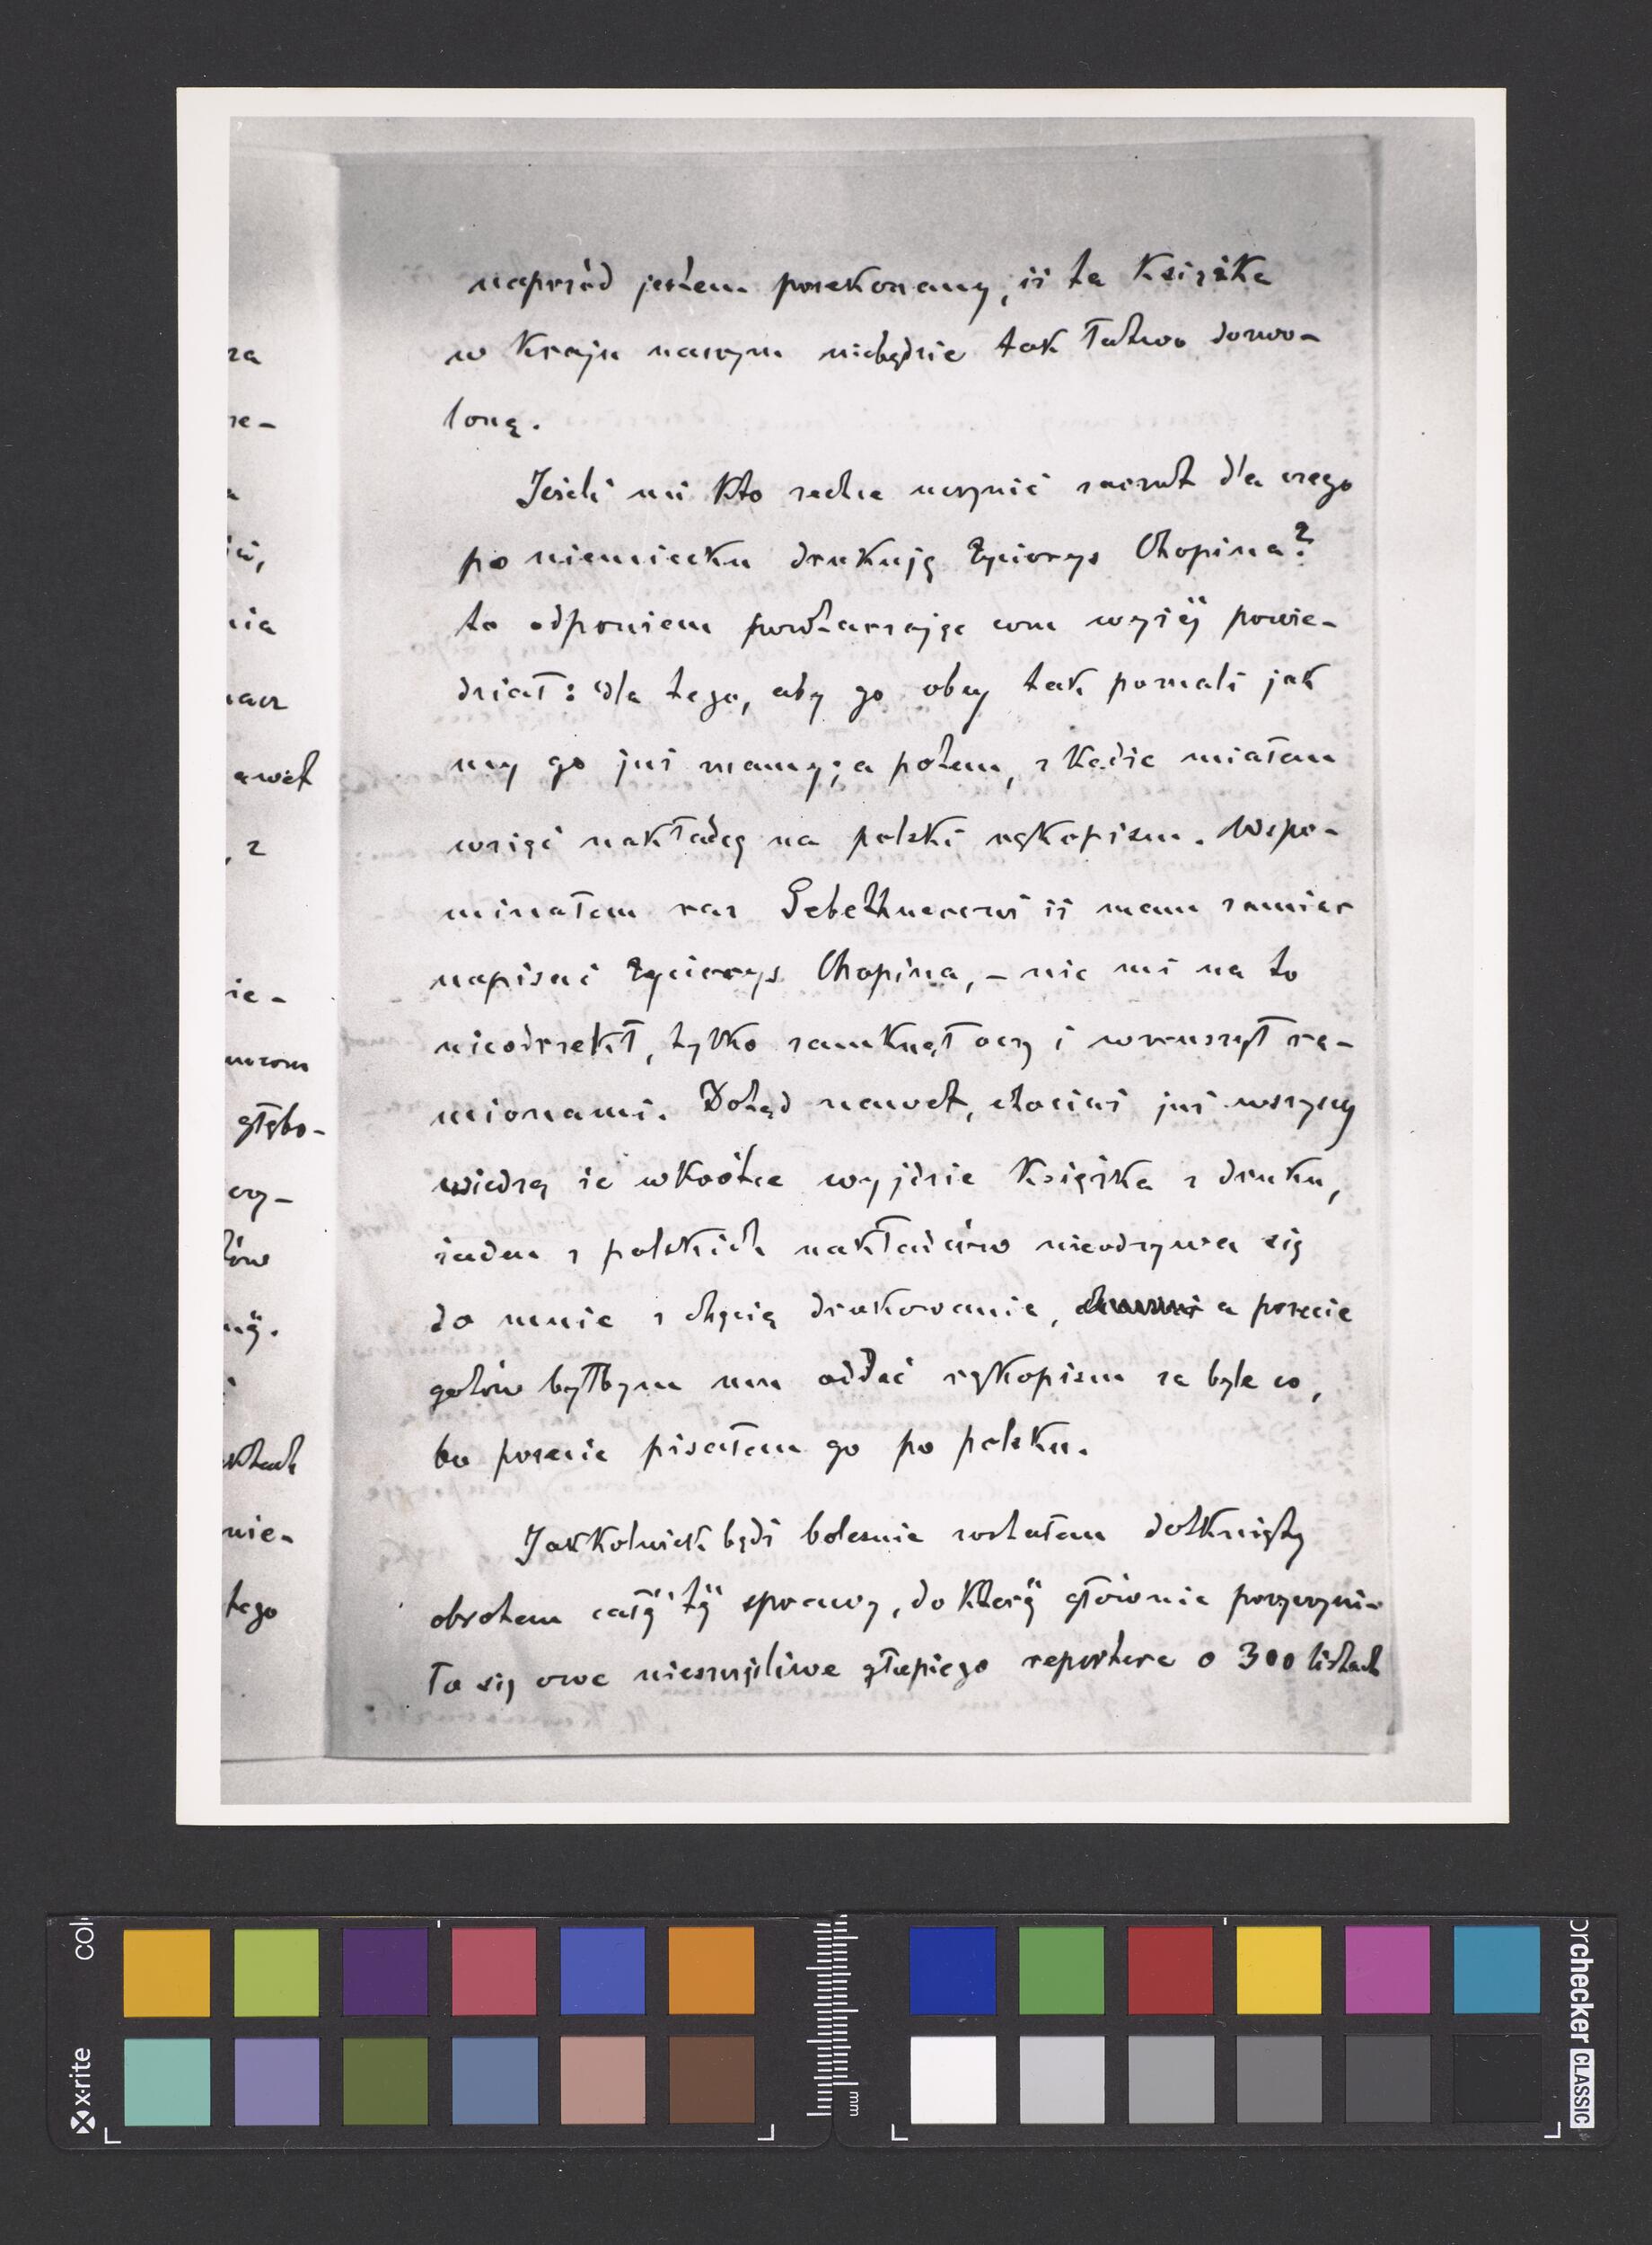 naprzód jestem przekonany, iż ta Książka
w Kraju naszym niebędzie tak łatwo dozwo-
loną.
Jeżeli mi Kto zechce uczynić zarzut dla czego
po niemiecku drukuję Życiorys Chopina?
to odpowiem powtarzając com wyżéj powie-
dział: dla tego, aby go obcy tak poznali jak
my go już znamy; a potem, zkądże miałem
wziąć nakładcę na polski rękopism. Wspo-
minałem raz Gebethnerowi iż mam zamiar
napisać Życiorys Chopina, – nic mi na to
nieodrzekł, tylko zamknął oczy i wzruszył ra-
mionami. Dotąd nawet, chociaż już wszyscy
wiedzą że wkrótce wyjdzie Książka z druku,
żaden z polskich nakładców nieodzywa się
do mnie z chęcią drukowania, a przecie
gotów byłbym mu oddać rękopism za byle co,
bo przecie pisałem go po polsku.
Jakkolwiek bądź boleśnie zostałem dotknięty
obrotem całéj téj sprawy, do któréj głównie przyczyni-
ła się owa nieszczęśliwa głupiego reportera o 300 listach
za
ne-
nia
nacz
awet
, z
nie-
głębo-
czy-
nie-
tego
col
x·rite
mm
orchecker CLASSIC